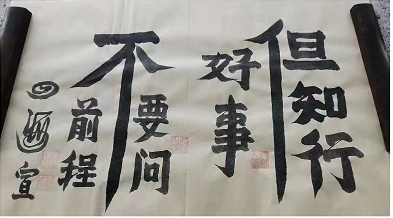 但知行
好事
不要问
前程
宣